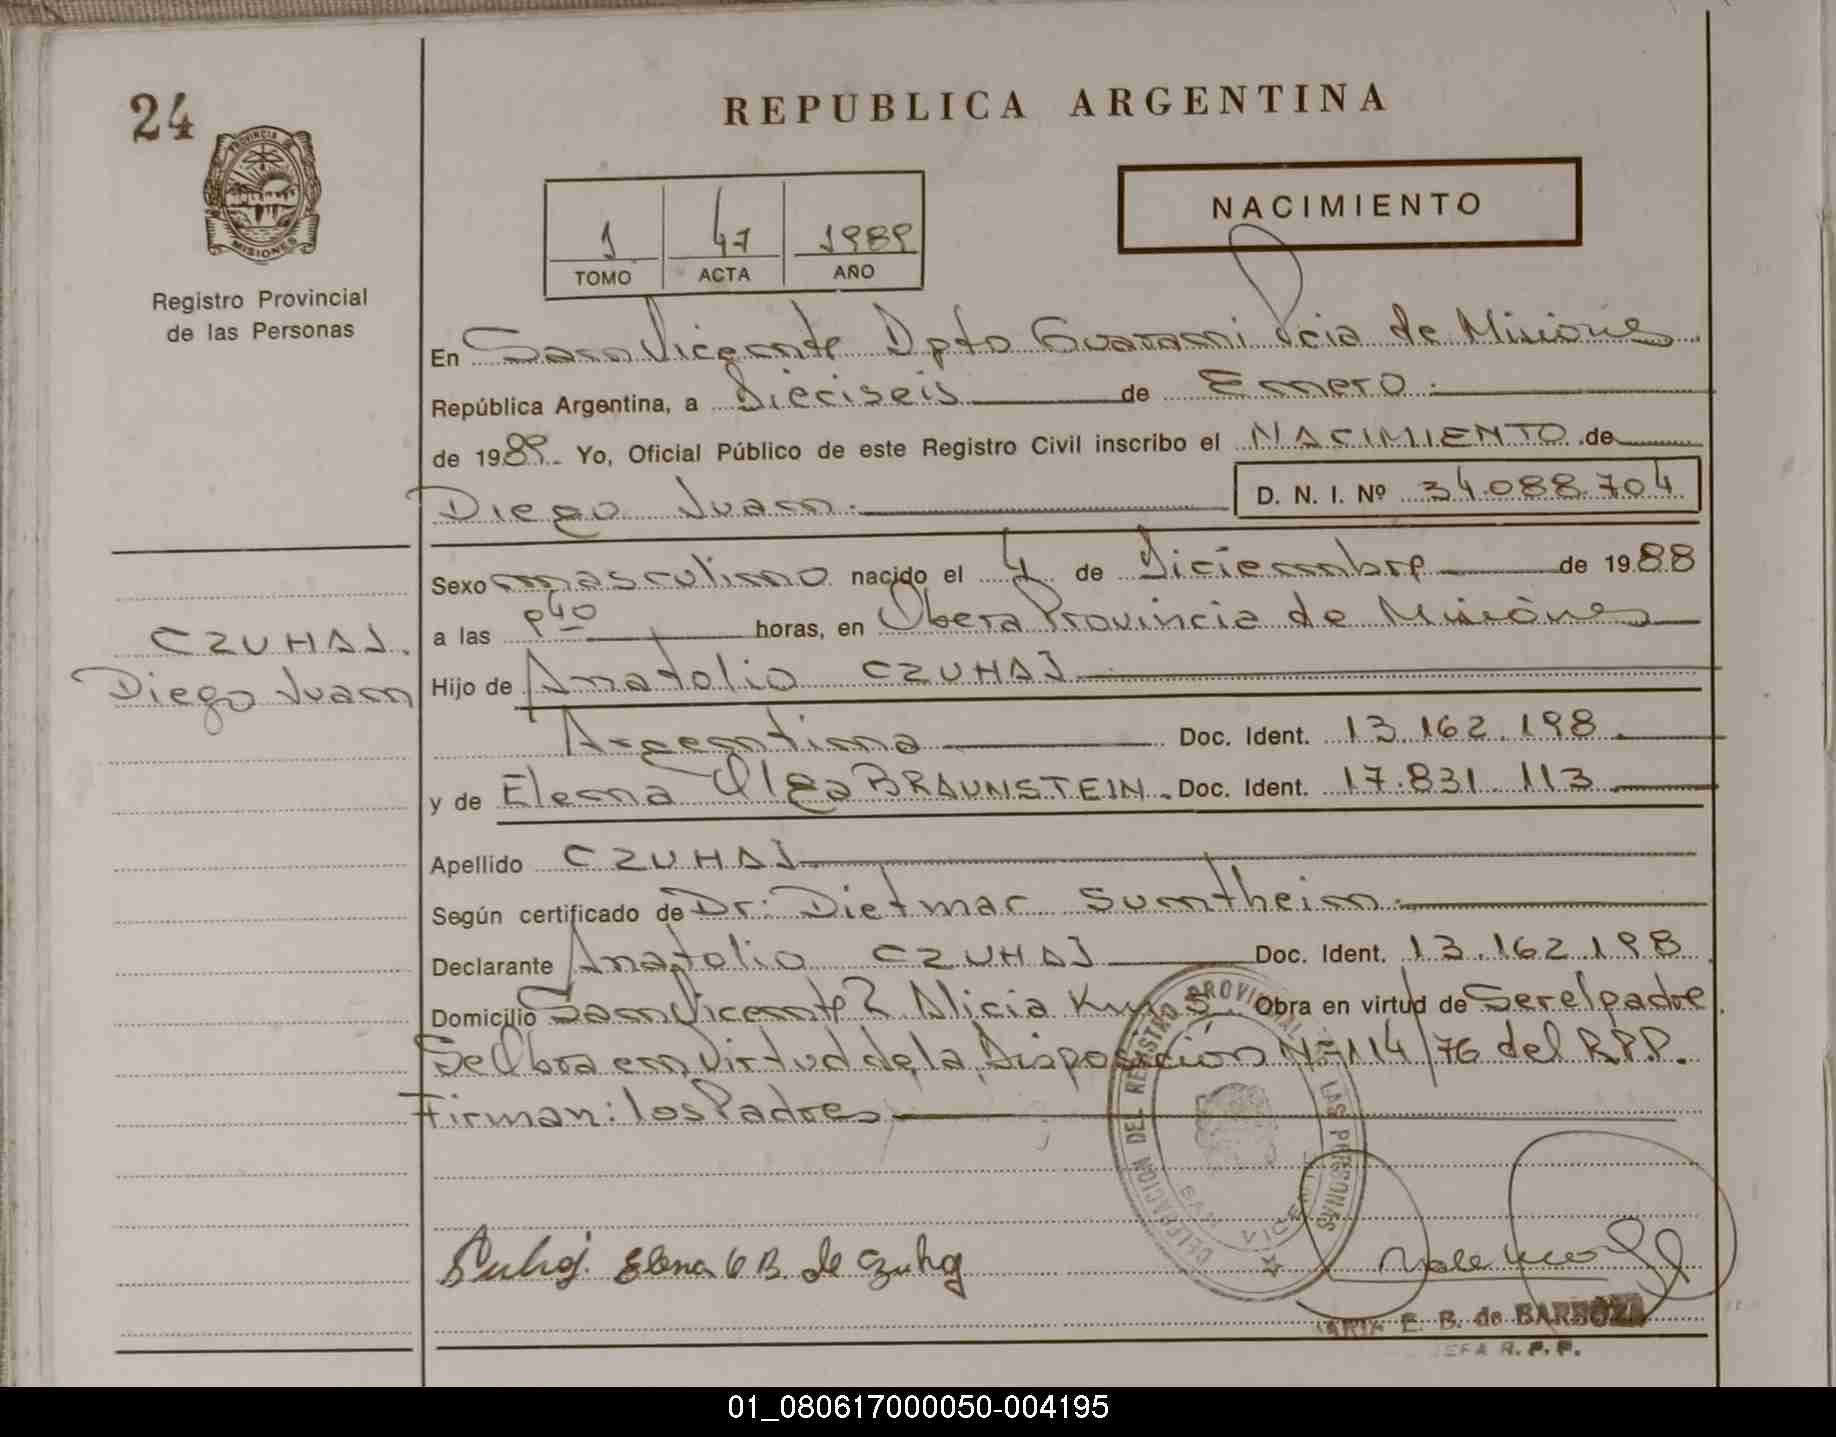 24
PROVINCIA
MISIONES
Registro Provincial
de las Personas
REPUBLICA ARGENTINA
NACIMIENTO
1 47 1989
TOMO ACTA AÑO
En San Vicente Dpto Guarani Pcia de Misiones
República Argentina, a Dieciseis de Enero
de 1989 Yo, Oficial Público de este Registro Civil inscribo el NACIMIENTO de
Diego Juan D. N. I. Nº 34.088.704
Sexo masculino nacido el 4 de Diciembre de 1988
a las 9 40 horas, en Obera Provincia de Misiones
CZUHAJ.
Diego Juan
Hijo de Anatolio CZUHAJ
Argentina Doc. Ident. 13.162.198
y de Elena Olga BRAUNSTEIN. Doc. Ident. 17.831.113
Apellido CZUHAJ
Según certificado de Dr: Dietmar Sumtheim
Declarante Anatolio CZUHAJ Doc. Ident. 13.162.198
Domicilio San Vicente Alicia Km Obra en virtud de Ser el padre
Se Obra en Virtud de la Disposición Nº 114/76 del R.P.P.
Firman: los Padres
DELEGACION DEL REGISTRO PROVINCIAL DE LAS PERSONAS
SAN VICENTE
Elena O B. de Czuhaj
E. B. de BARBOZA
JEFA R. P. P.
01_080617000050-004195